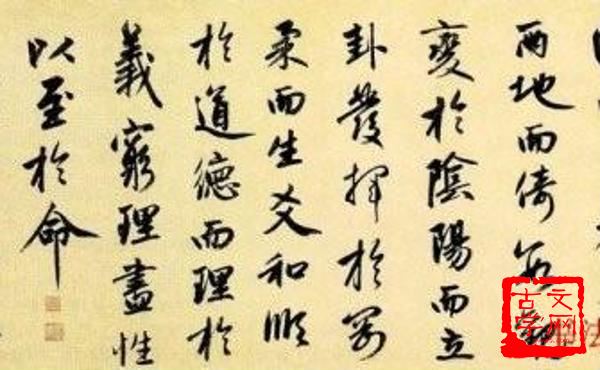 兩地而倚數觀
變於陰陽而立
卦發揮於剛
柔而生爻和順
於道德而理於
義窮理盡性
以至於命
古文
学网
法